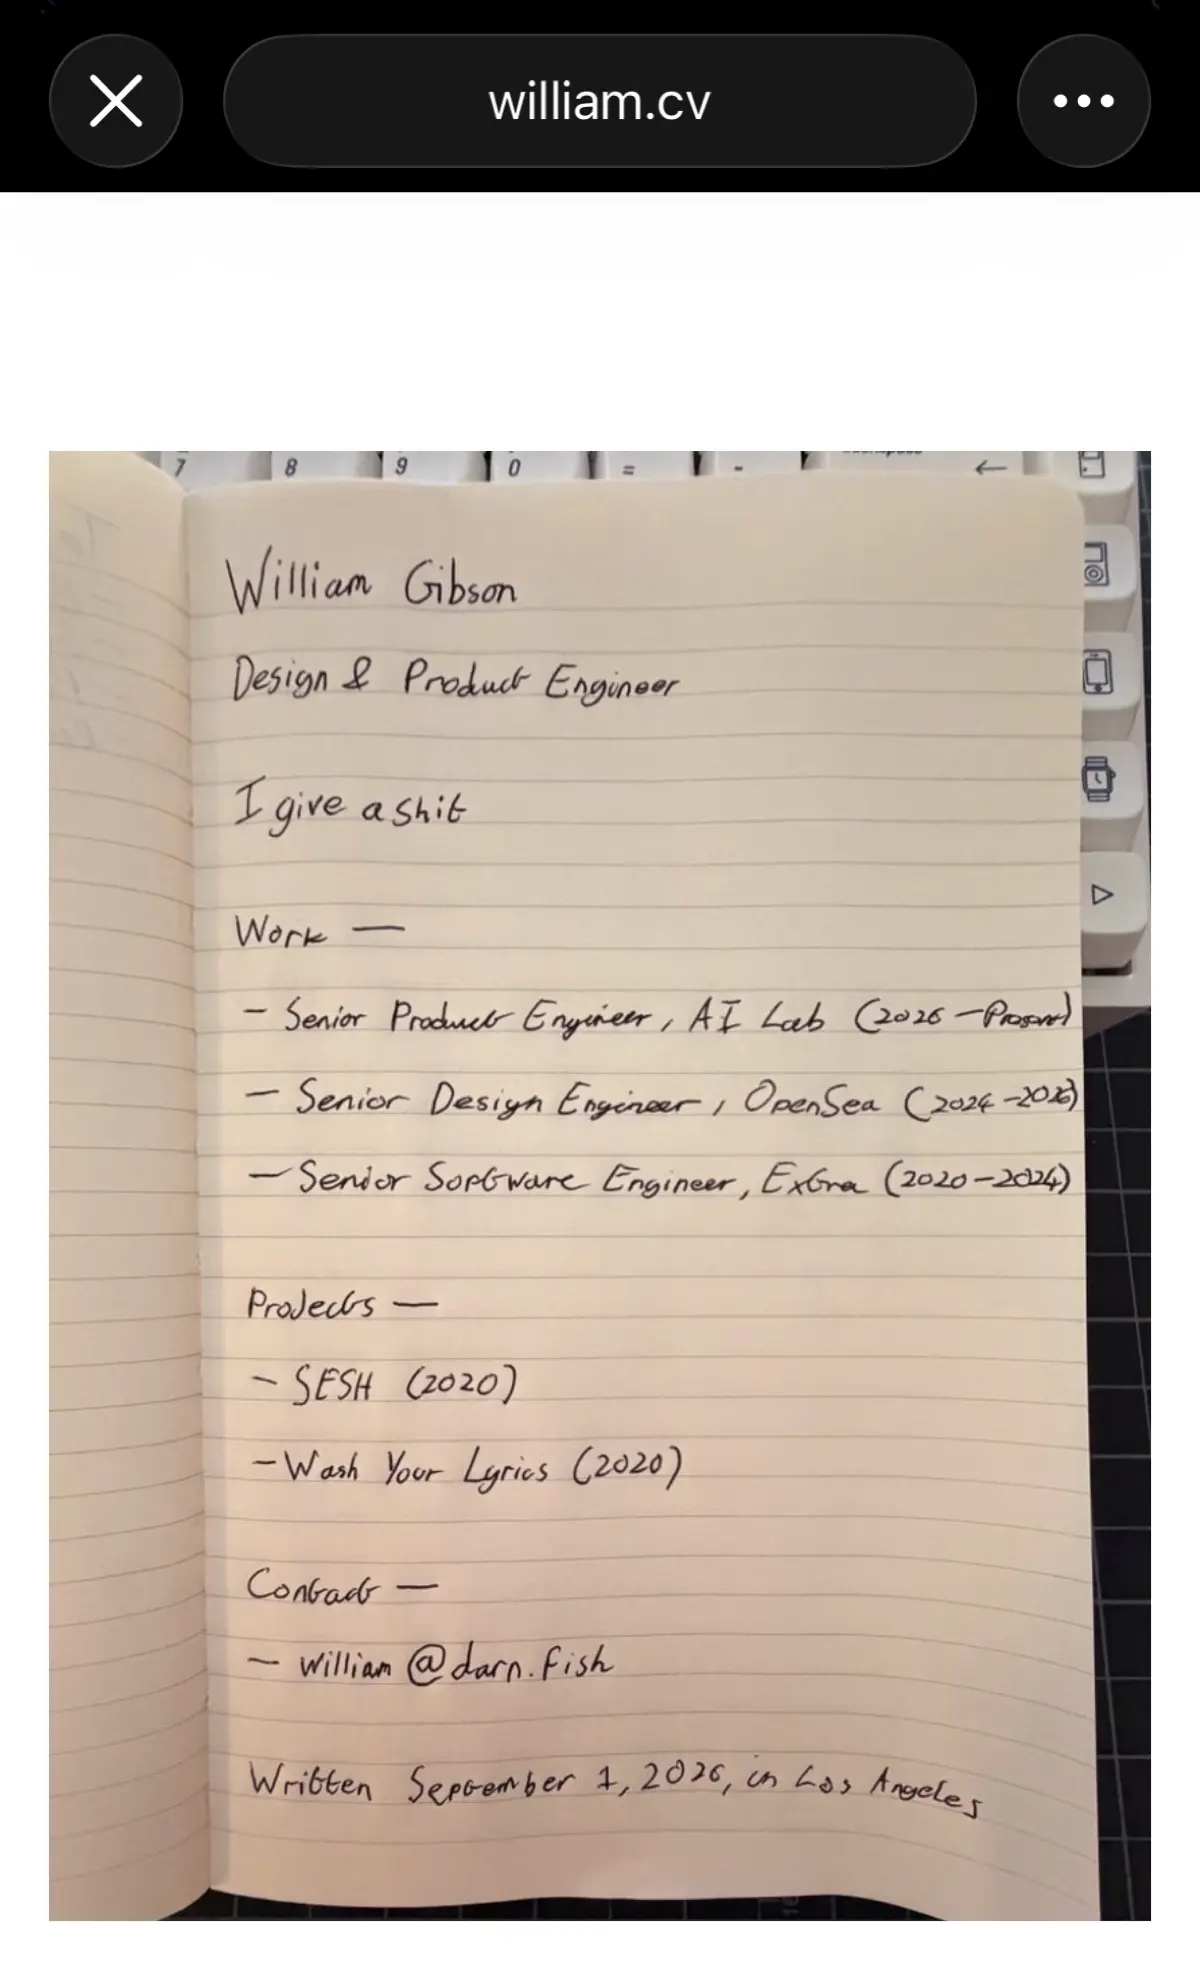 william.cv
7 8 9 0 = -
William Gibson
Design & Product Engineer
I give a shit
Work —
- Senior Product Engineer, AI Lab (2026 - Present)
- Senior Design Engineer, OpenSea (2024 - 2026)
- Senior Software Engineer, Extra (2020 - 2024)
Projects —
- SESH (2020)
- Wash Your Lyrics (2020)
Contact —
- william@darn.fish
Written September 1, 2026, in Los Angeles